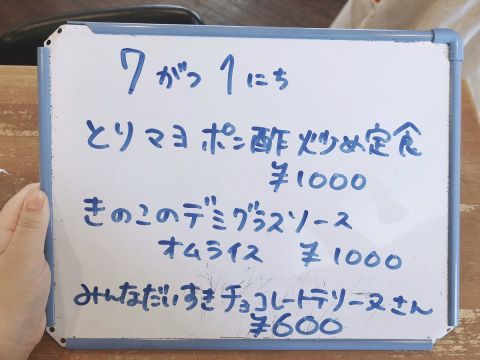 7がつ1にち
とりマヨポン酢炒め定食
¥1000
きのこのデミグラスソース
オムライス ¥1000
みんなだいすきチョコレートテリーヌさん
¥600